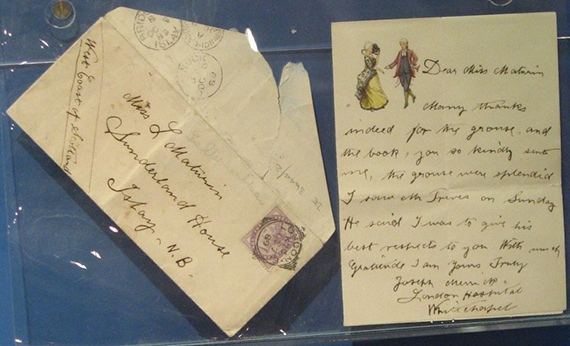 West Coast of Scotland
Miss L Maturin
Sunderland House
Islay - N.B -
Dear Miss Maturin
Many thanks
indeed for the grouse and
the book, you so kindly sent
me, the grouse were splendid
I saw Mr Treves on Sunday
He said I was to give his
best respects to you With much
Gratitude I am Yours Truly
Joseph Merrick
London Hospital
Whitechapel